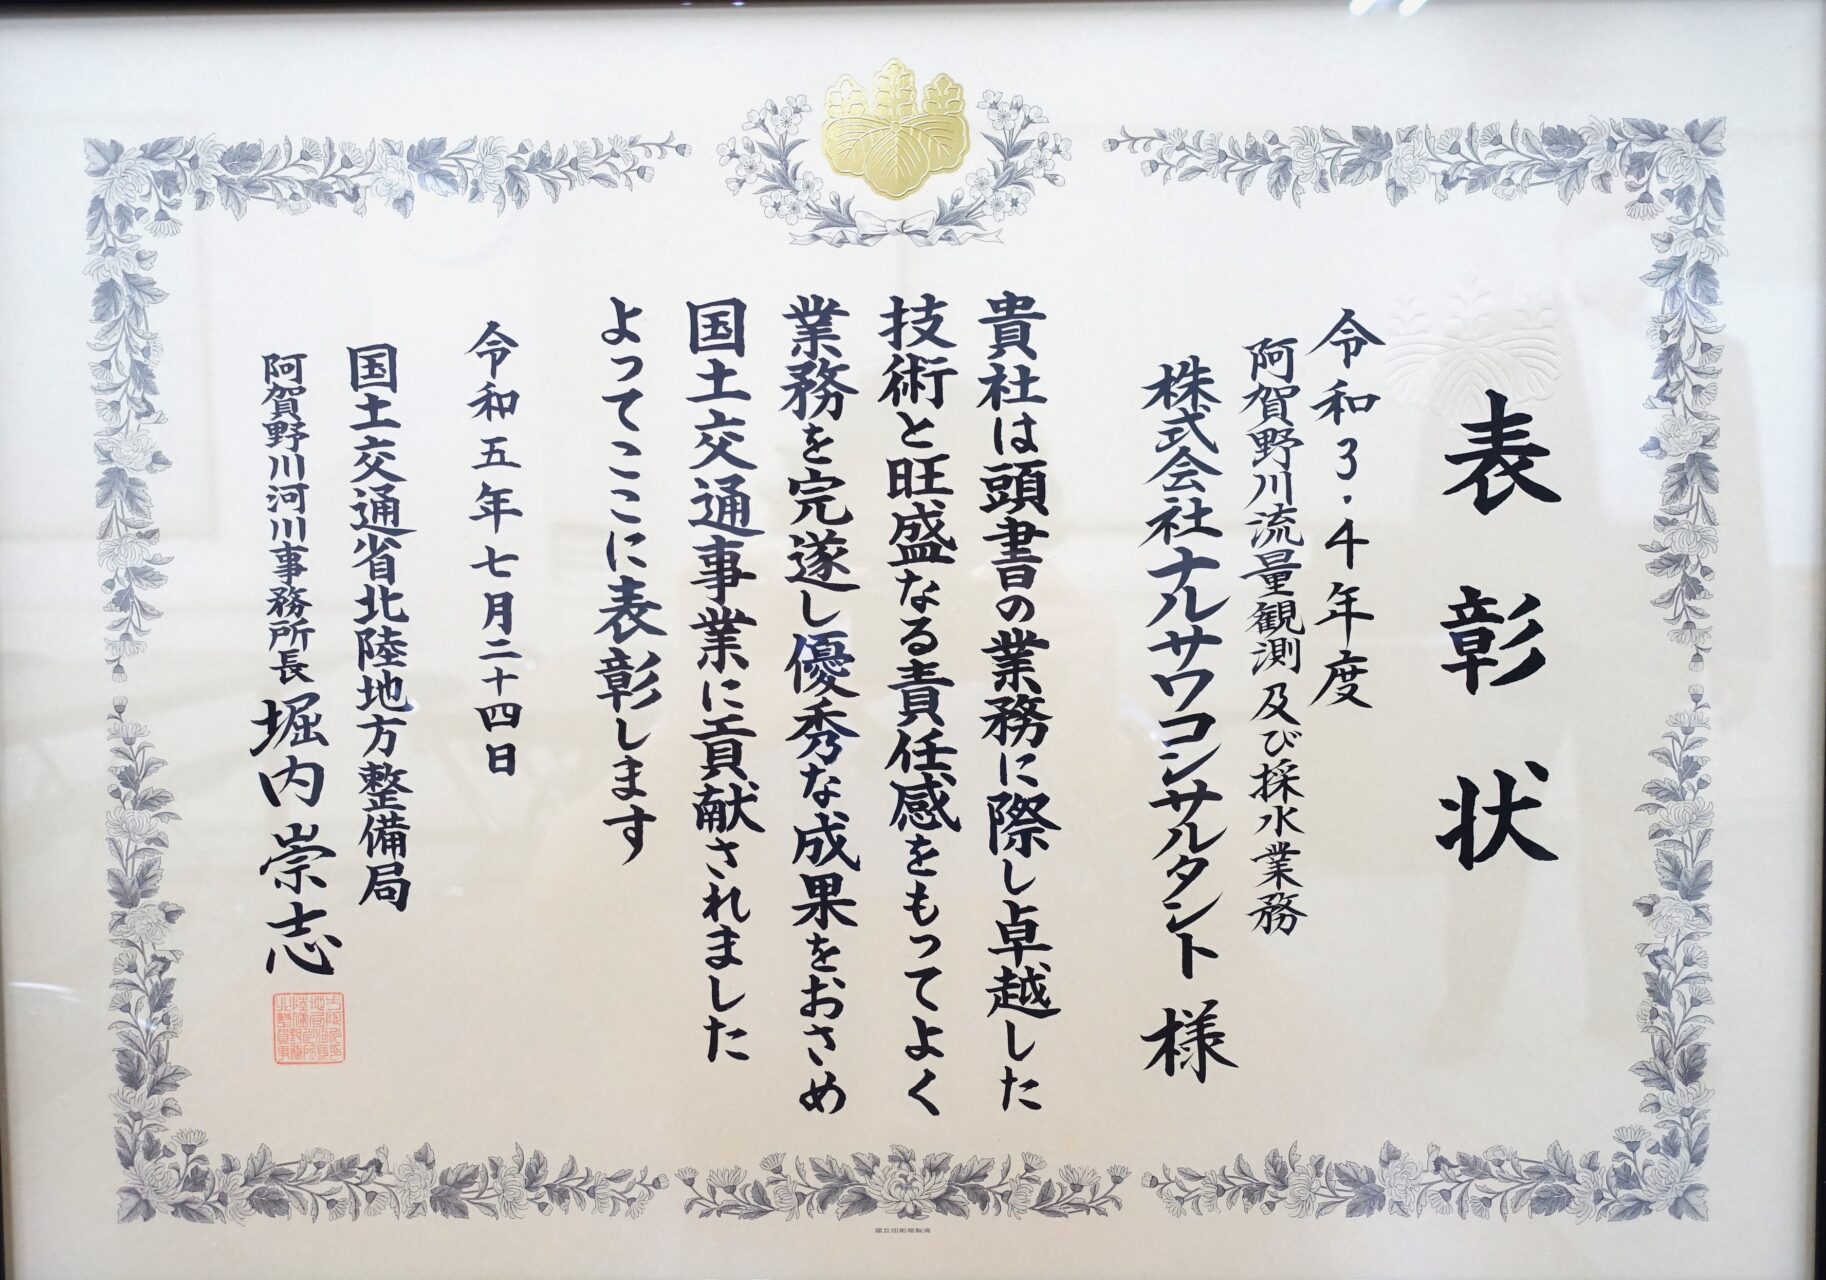 表彰状
令和3・4年度
阿賀野川流量観測及び採水業務
株式会社ナルサワコンサルタント 様
貴社は頭書の業務に際し卓越した
技術と旺盛なる責任感をもってよく
業務を完遂し優秀な成果をおさめ
国土交通事業に貢献されました
よってここに表彰します
令和五年七月二十四日
国土交通省北陸地方整備局
阿賀野川河川事務所長 堀内崇志
国立印刷局製造